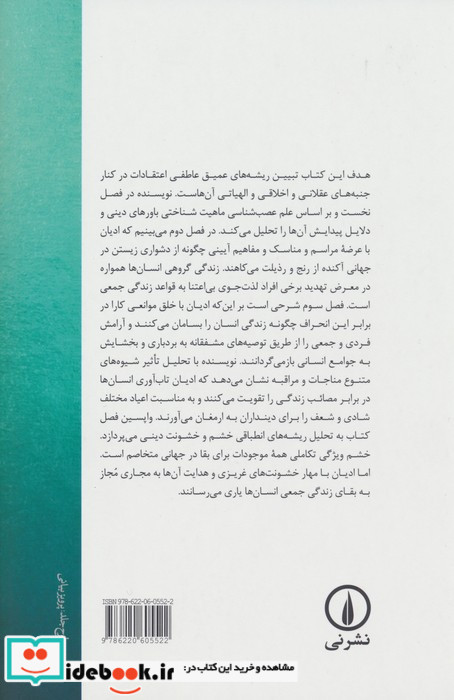 هدف این کتاب تبیین ریشه‌های عمیق عاطفی اعتقادات در کنار
جنبه‌های عقلانی و اخلاقی و الهیاتی آن‌هاست. نویسنده در فصل
نخست و بر اساس علم عصب‌شناسی ماهیت شناختی باورهای دینی و
دلایل پیدایش آن‌ها را تحلیل می‌کند. در فصل دوم می‌بینیم که ادیان
با عرضهٔ مراسم و مناسک و مفاهیم آیینی چگونه از دشواری زیستن در
جهانی آکنده از رنج و رذیلت می‌کاهند. زندگی گروهی انسان‌ها همواره
در معرض تهدید برخی افراد لذت‌جوی بی‌اعتنا به قواعد زندگی جمعی
است. فصل سوم شرحی است بر این‌که ادیان با خلق موانعی کارا در
برابر این انحراف چگونه زندگی انسان را بسامان می‌کنند و آرامش
فردی و جمعی را از طریق توصیه‌های مشفقانه به بردباری و بخشایش
به جوامع انسانی بازمی‌گردانند. نویسنده با تحلیل تأثیر شیوه‌های
متنوع مناجات و مراقبه نشان می‌دهد که ادیان تاب‌آوری انسان‌ها
در برابر مصائب زندگی را تقویت می‌کنند و به مناسبت اعیاد مختلف
شادی و شعف را برای دینداران به ارمغان می‌آورند. واپسین فصل
کتاب به تحلیل ریشه‌های انطباقی خشم و خشونت دینی می‌پردازد.
خشم ویژگی تکاملی همهٔ موجودات برای بقا در جهانی متخاصم است.
اما ادیان با مهار خشونت‌های غریزی و هدایت آن‌ها به مجاری مُجاز
به بقای زندگی جمعی انسان‌ها یاری می‌رسانند.
ISBN 978-622-06-0552-2
9 786220 605522
نشرنی
جلد: پرویز بیانی
مشاهده و خرید این کتاب در:
idebook.ir